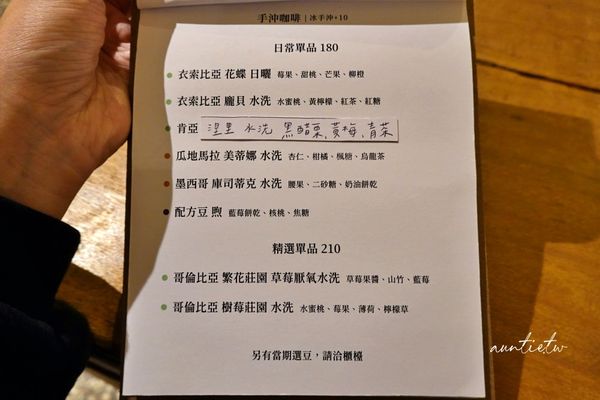 手沖咖啡 | 冰手沖+10
日常單品 180
衣索比亞 花蝶 日曬 莓果、甜桃、芒果、柳橙
衣索比亞 龐貝 水洗 水蜜桃、黃檸檬、紅茶、紅糖
肯亞 涅里 水洗 黑醋栗、黃梅、青茶
瓜地馬拉 美蒂娜 水洗 杏仁、柑橘、楓糖、烏龍茶
墨西哥 庫司蒂克 水洗 腰果、二砂糖、奶油餅乾
配方豆 煦 藍莓餅乾、核桃、焦糖
精選單品 210
哥倫比亞 繁花莊園 草莓厭氧水洗 草莓果醬、山竹、藍莓
哥倫比亞 樹莓莊園 水洗 水蜜桃、莓果、薄荷、檸檬草
另有當期選豆，請洽櫃檯
auntie.tw